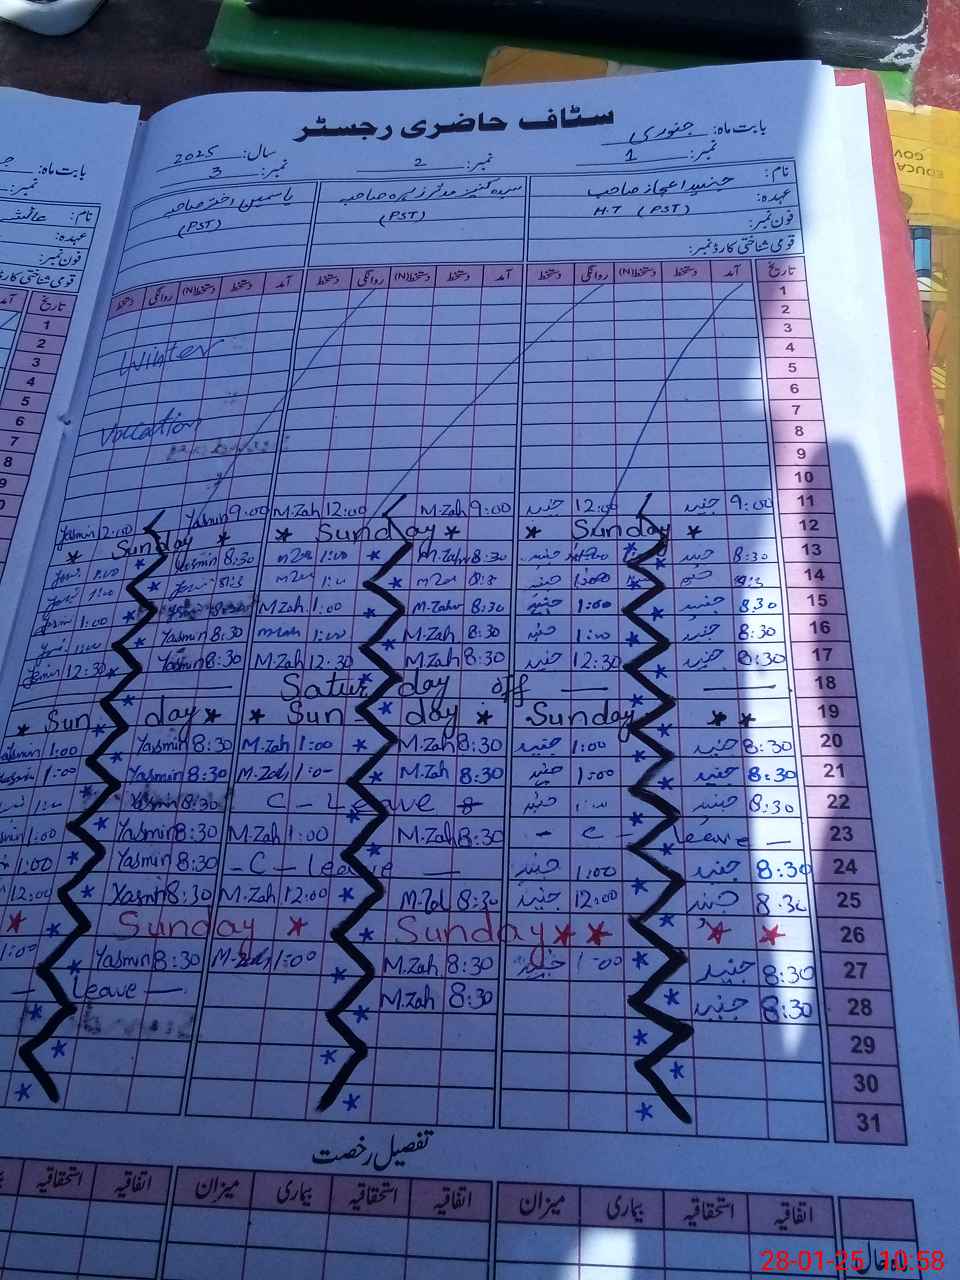 سٹاف حاضری رجسٹر
بابت ماہ: جنوری سال: 2025
نمبر: 1 نمبر: 2 نمبر: 3
نام: جنید اعجاز صاحب
یاسمین اختر صاحبہ
عہدہ: H.T (PST) (PST) (PST)
فون نمبر:
قومی شناختی کارڈ نمبر:
تاریخ آمد دستخط دستخط(N) روانگی دستخط آمد دستخط دستخط(N) روانگی دستخط آمد دستخط دستخط(N) روانگی دستخط
1
2
3
4 Winter
5
6
7
8 Vaccation
9
10
11 9:00 جنید 12:00 جنید 9:00 M.Zah 12:00 M.Zah 9:00 Yasmin 12:00 Yasmin
12 * Sunday * * Sunday * * Sunday *
13 8:30 جنید M.Zah 8:30 1:00 Yasmin 8:30 1:00
14 1:00
15 8:30 جنید 1:00 جنید 8:30 M.Zah 1:00 M.Zah 1:00
16 8:30 جنید 1:00 جنید 8:30 M.Zah 1:00 8:30 Yasmin
17 8:30 جنید 12:30 جنید 8:30 M.Zah 12:30 M.Zah 8:30 Yasmin 12:30
18 Saturday off
19 * * Sunday * Sunday * * Sunday *
20 8:30 جنید 1:00 جنید 8:30 M.Zah 1:00 M.Zah 8:30 Yasmin 1:00 Yasmin
21 8:30 جنید 1:00 جنید 8:30 M.Zah 1:00 M.Zah 8:30 Yasmin 1:00
22 8:30 جنید C - Leave 8:30 Yasmin 1:00
23 - C - leave - 8:30 M.Zah 1:00 M.Zah 8:30 Yasmin 1:00
24 8:30 جنید 1:00 جنید - C - leave - 8:30 Yasmin 1:00
25 8:30 جنید 12:00 جنید 8:30 M.Zah 12:00 M.Zah 8:30 Yasmin 12:00
26 * * Sunday * * Sunday * *
27 8:30 جنید 1:00 جنید 8:30 M.Zah 1:00 M.Zah 8:30 Yasmin 1:00
28 8:30 جنید 8:30 M.Zah - leave -
29
30
31
تفصیل رخصت
اتفاقیہ استحقاقیہ بیماری میزان اتفاقیہ استحقاقیہ بیماری میزان اتفاقیہ استحقاقیہ
بابت ماہ:
نمبر:
نام:
عہدہ:
فون نمبر:
قومی شناختی کارڈ
تاریخ
1
2
3
4
5
6
7
8
9
28-01-25 10:58